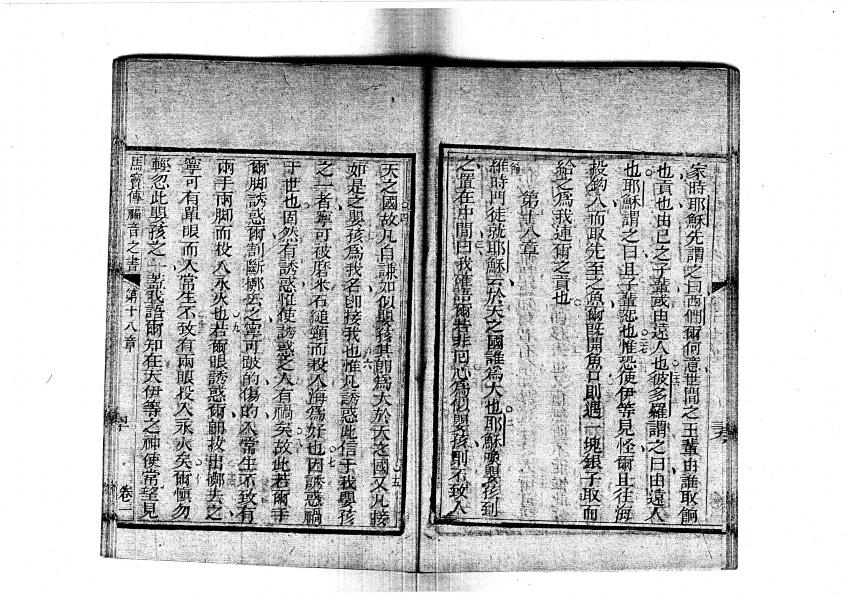 家時耶穌先謂之曰西們爾何意世間之王輩由誰取餉
也貢也由己之子輩或由遠人也彼多羅謂之曰由遠人
也耶穌謂之曰且子輩恕也惟恐使伊等見怪爾且往海
投鈎入而取先至之魚爾既開魚口則遇一塊銀子取而
給之為我連爾之貢也
第十八章
維時門徒就耶穌云於天之國誰為大也耶穌喚嬰孩到
之置在中間曰我確語爾若非回心為似嬰孩則不致入
天之國故凡自謙如似嬰孩其即為大於天之國又凡接
如是之嬰孩為我名即接我也惟凡誘惑此信于我嬰孩
之一者寧可被磨米石縋頸而投入海為好也因誘惑禍
于世也固然有誘惑惟使誘惑之人有禍矣故此若爾手
爾脚誘惑爾割斷擲去之寧可跛的傷的入常生不致有
兩手兩脚而投入永火也若爾眼誘惑爾即拔出擲去之
寧可有單眼而入常生不致有兩眼投入永火矣爾慎勿
輕忽此嬰孩之一蓋我語爾知在天伊等之神使常望見
馬竇傳福音之書 第十八章 卷一